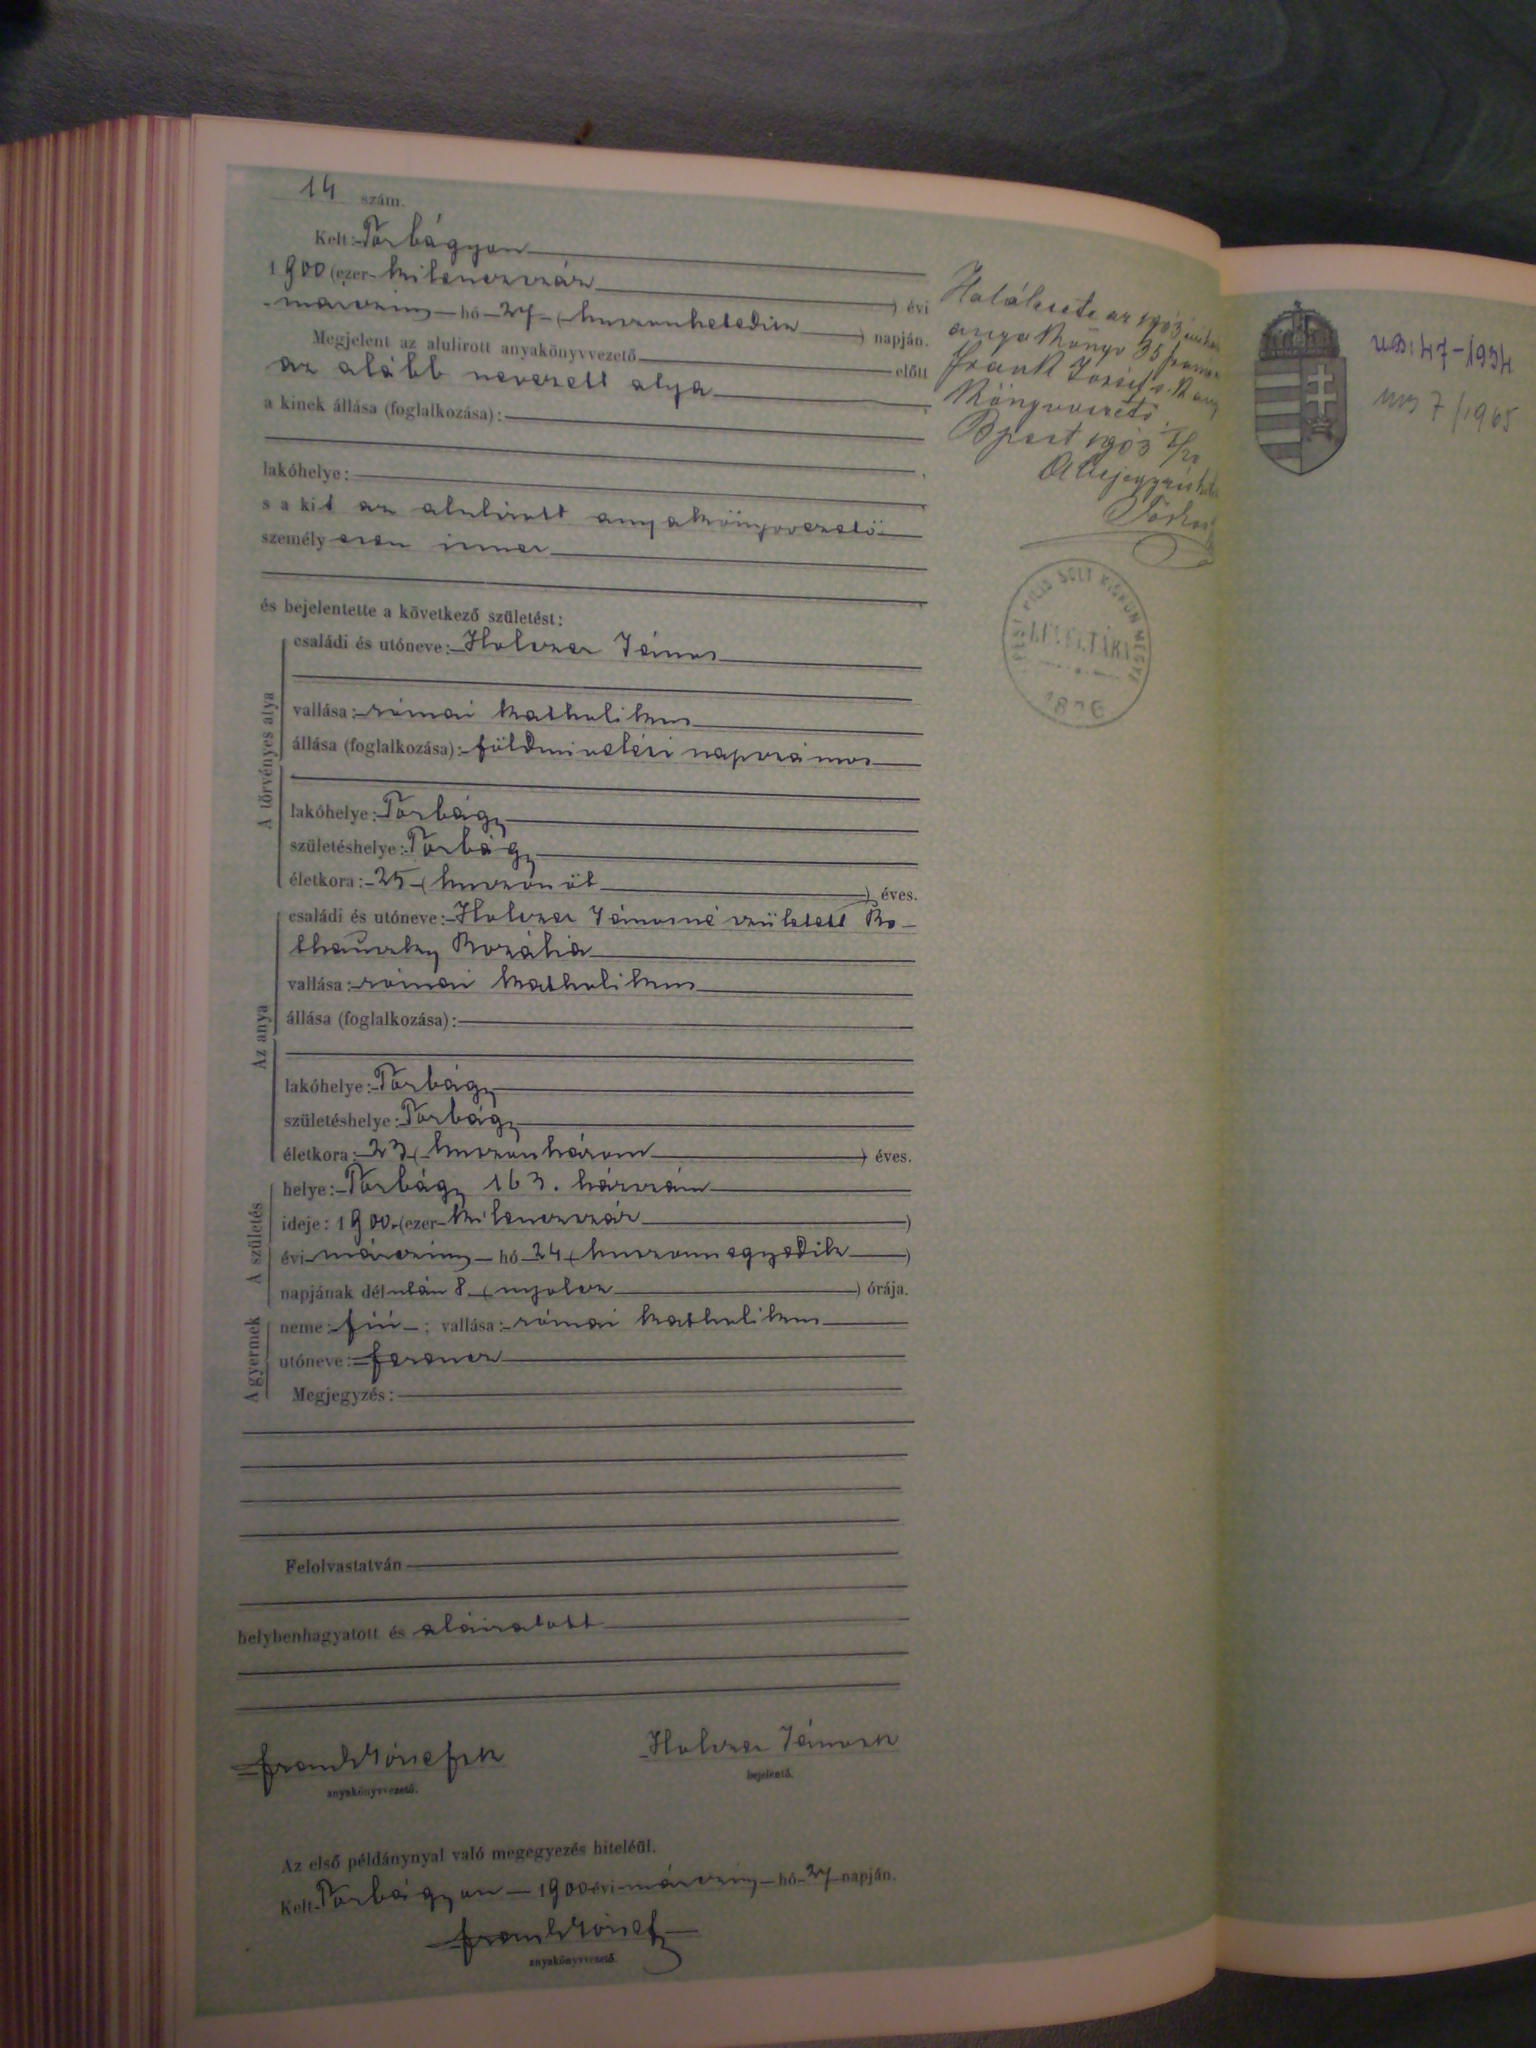 14 szám.
Kelt: Torbágyon
1900 (ezer kilenczszáz ) évi
márczius hó 27 ( huszonhetedik ) napján.
Megjelent az alulirott anyakönyvvezető előtt
az alább nevezett atya
a kinek állása (foglalkozása):
lakóhelye:
s a kit az alulirott anyakönyvvezető
személyesen ismer
és bejelentette a következő születést:
A törvényes atya
családi és utóneve: Holczer János
vallása: római katholikus
állása (foglalkozása): földmivelési napszámos
lakóhelye: Torbágy
születéshelye: Torbágy
életkora: 25 ( huszonöt ) éves.
Az anya
családi és utóneve: Holczer Jánosné született
Rozália
vallása: római katholikus
állása (foglalkozása):
lakóhelye: Torbágy
születéshelye: Torbágy
életkora: 23 ( huszonhárom ) éves.
A születés
helye: Torbágy 163. házszám
ideje: 1900. (ezer kilenczszáz )
évi márczius hó 24 ( huszonnegyedik )
napjának délután 8 ( nyolcz ) órája.
A gyermek
neme: fiú ; vallása: római katholikus
utóneve: Ferencz
Megjegyzés:
Felolvastatván
helybenhagyatott és aláiratott
Frank József sk
anyakönyvvezető.
Holczer János sk
bejelentő.
Az első példánynyal való megegyezés hiteléül.
Kelt Torbágyon 1900 évi márczius hó 27 napján.
Frank József
anyakönyvvezető.
Halálesete az 1903
anyakönyv 35
Frank József s. k. any
könyvvezető
Bpest 1903
A bejegyzés
MEGYE
LEVÉLTÁRA
1876
47-1934
7/1965